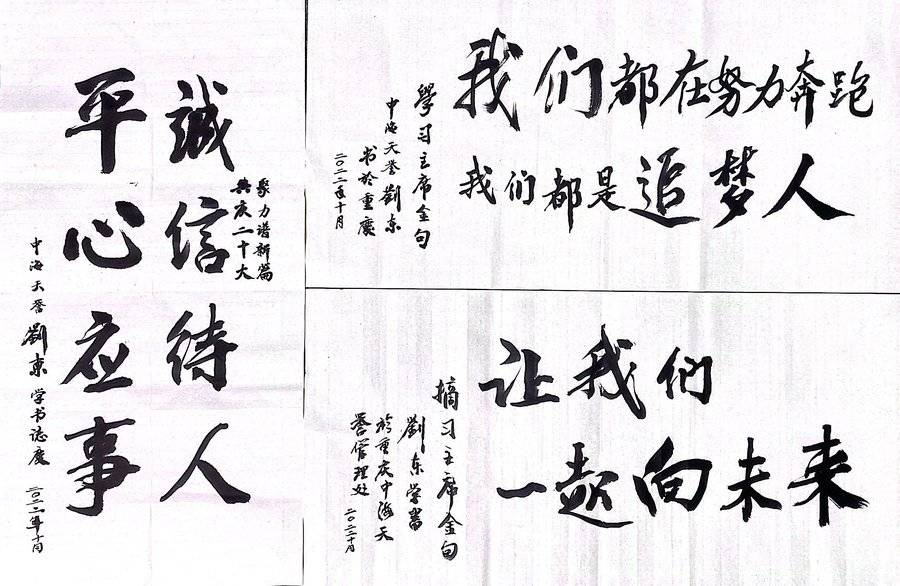 誠信待人
平心应事
聚力谱新篇
共庆二十大
中海天誉劉東学书志庆
二〇二二年十月
我们都在努力奔跑
我们都是追梦人
學习主席金句
中海天誉劉东
书於重慶
二〇二二年十月
让我们
一起向未来
摘习主席金句
劉东学書
於重庆中海天
誉管理处
二〇二二十月